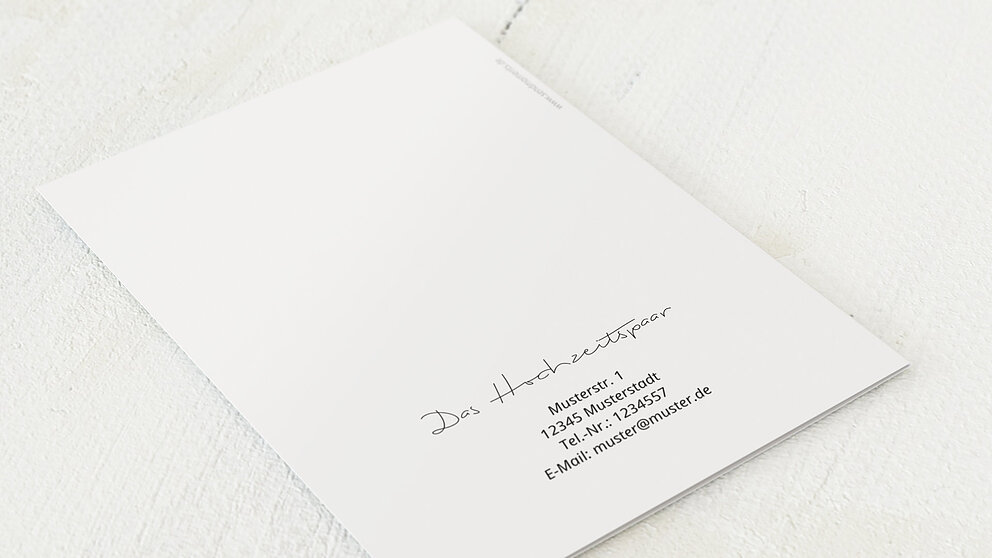 Das Hochzeitspaar
Musterstr. 1
12345 Musterstadt
Tel.-Nr.: 1234557
E-Mail: muster@muster.de